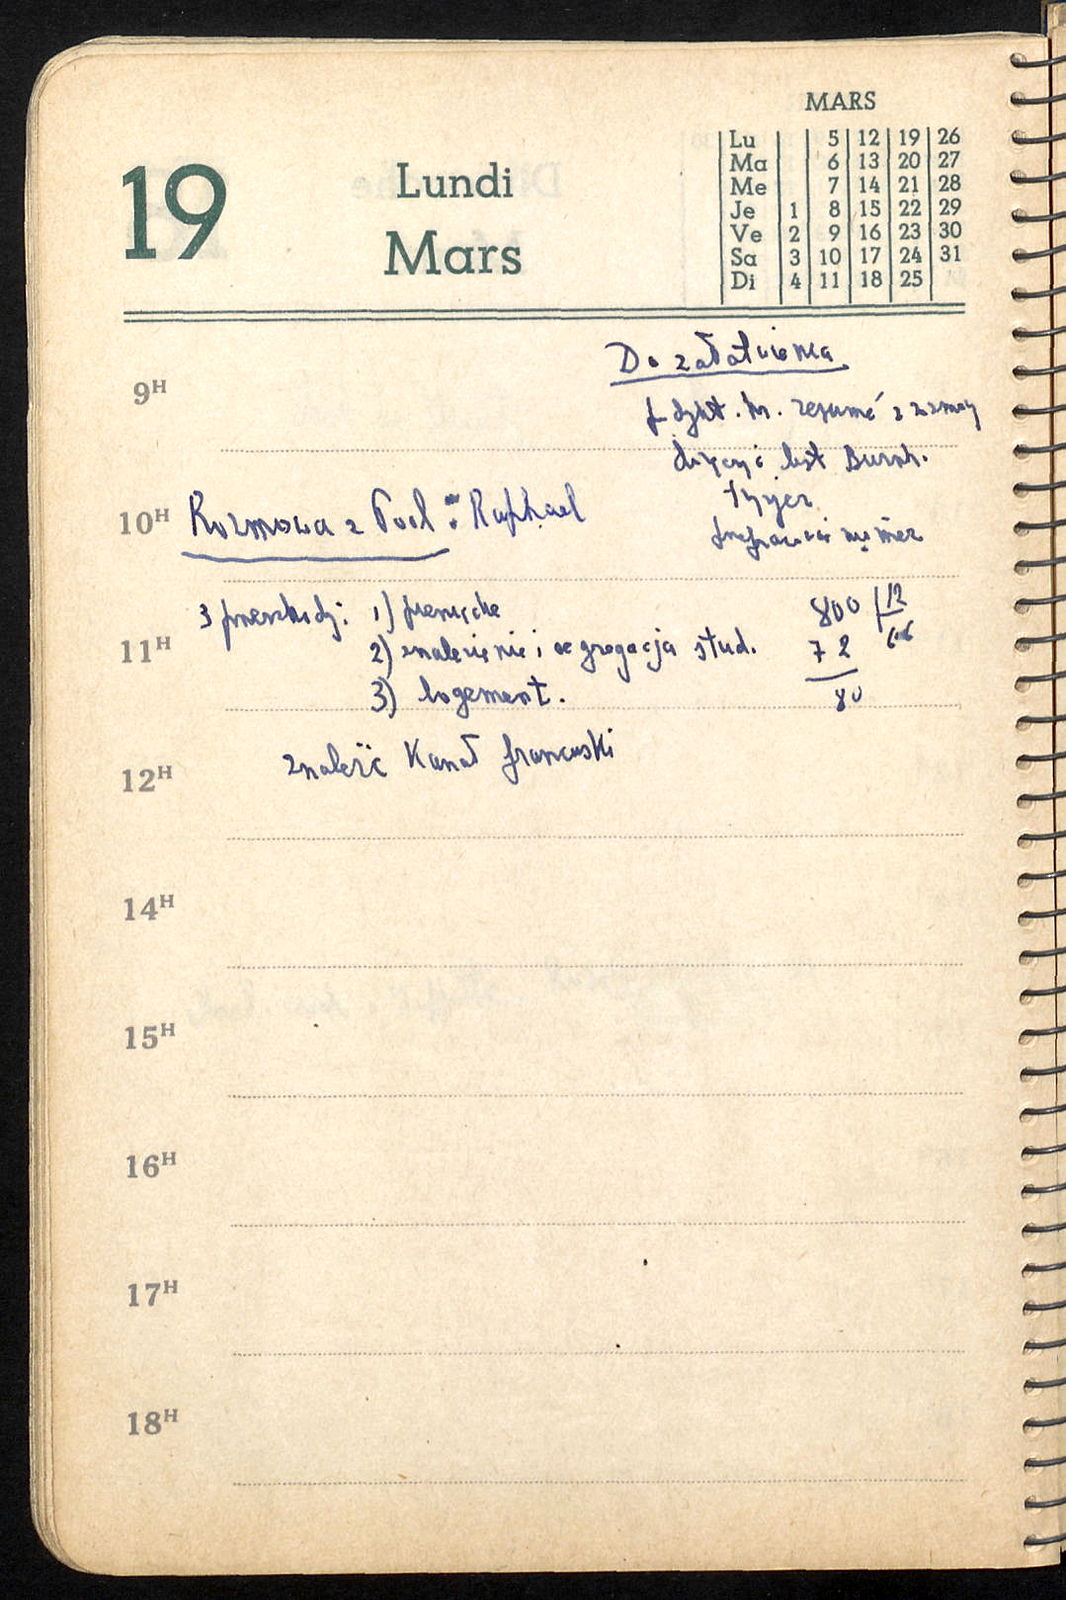 MARS
Lu 5 12 19 26
Ma 6 13 20 27
Me 7 14 21 28
Je 1 8 15 22 29
Ve 2 9 16 23 30
Sa 3 10 17 24 31
Di 4 11 18 25
19
Lundi
Mars
Do załatwienia
resumé z
list
9H
10H Rozmowa z : Raphael
3 przeszkody: 1) pieniądze
11H 2) znalezienie i agregacja stud.
3) logement.
800 12
72 66
80
znaleźć Kanał francuski
12H
14H
15H
16H
17H
18H